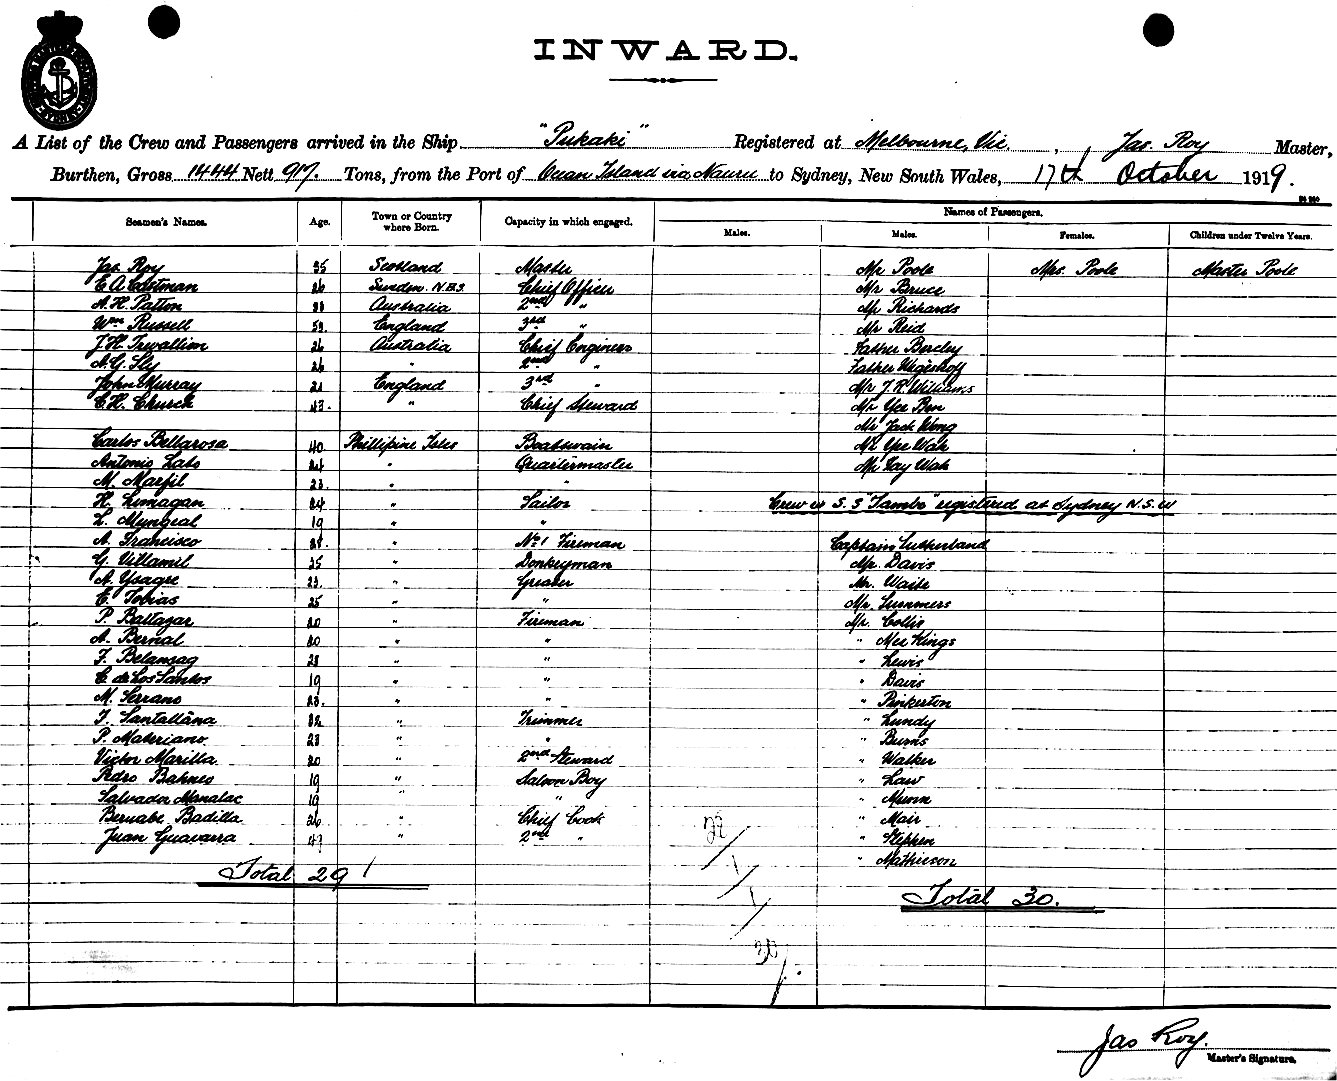 INWARD.
A List of the Crew and Passengers arrived in the Ship "Pukaki" Registered at Melbourne, Vic. , Jas. Roy Master,
Burthen, Gross 1444 Nett 917. Tons, from the Port of Ocean Island via Nauru to Sydney, New South Wales, 17th October 1919.
Names of Passengers.
Seamen's Names. Age. Town or Country where Born. Capacity in which engaged. Males. Males. Females. Children under Twelve Years.
Jas. Roy 35 Scotland Master Mr Poole Mrs. Poole Master Poole
E. A. Eastman 26 Sweden. N.B.S. Chief Officer Mr Bruce
A. H. Patton Australia 2nd " Mr Richards
Wm Russell England 3rd " Mr Reid
J. H. Trevallion 26 Australia Chief Engineer Father
A. G. Sly 26 " 2nd " Father
John Murray 21 England 3rd " Mr J. R. Williams
C. H. Church 43. " Chief Steward Mr Yee Bon
Mr Jack Wong
Carlos Bellarosa 40 Phillipine Isles Boatswain Mr Yee Wah
Antonio Labo 24 " Quartermaster Mr Tay Wah
M. Marfil 23. " "
H. Lumagan 24 " Sailor Crew ex S.S "Tambo" registered at Sydney N.S.W
L. Mungcal 19 " "
A. Francisco 28. " No. 1 Fireman Captain Sutherland
G. Villamil 35 " Donkeyman Mr. Davis
A. Ysagre 23. " Greaser Mr. Waite
E. Tobias 25 " " Mr. Summers
P. Baltazar 20 " Fireman Mr. Collis
A. Bernal 20 " " " Mer Kings
F. Belamsag 28 " " " Lewis
C. de Los Santos 19 " " " Davis
M. Serrano 23. " " " Pinkerton
F. Santallana 22 " Trimmer " Lundy
P. Materiano 23 " " " Burns
Victor Marilla 20 " 2nd Steward " Walker
Pedro Bahneo 19 " Saloon Boy " Law
Salvador Manalac 19 " " " Munn
Bernabe Badilla 26 " Chief Cook " Mair
Juan Guavarra 47 " 2nd " " Stephen
" Mathieson
Total 29
Total 30.
28
1
1
30
Jas Roy.
Master's Signature.